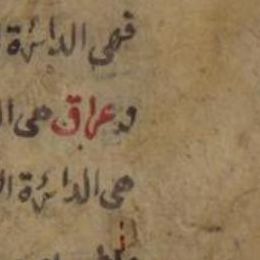 فهي الدائرة
وعراق هي ال
هي الدائرة ال